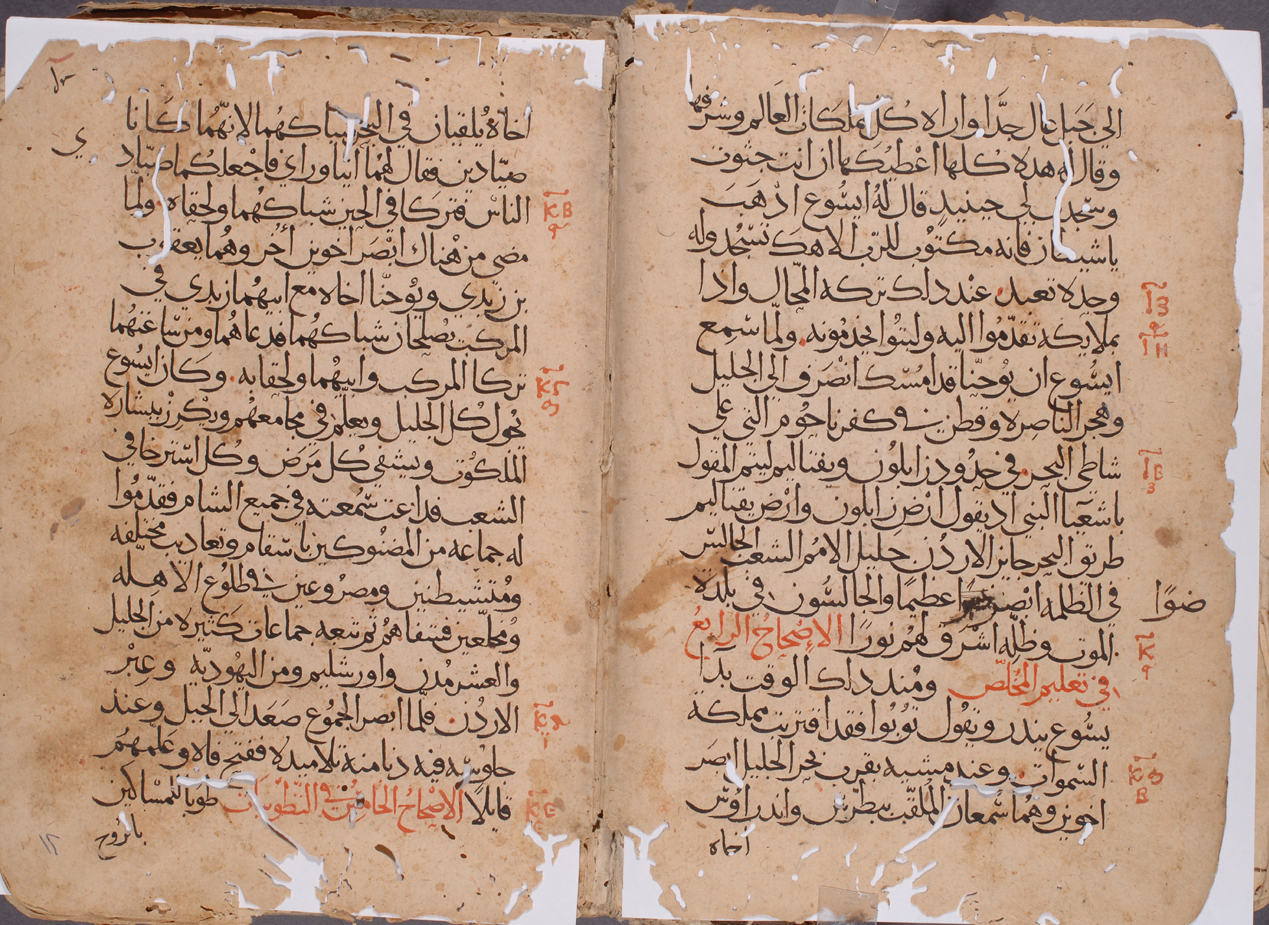 الي جبل عال جدا واراه كل مملكات العالم وشرفها
وقال له هده كلها اعطيكها ان انت جثوت
وسجدت لي حينيدٍ قال لهُ ايسُوع اذهَبَ
ياشيطان فانه مكتوُب للرب الاهك تسْجُد وله
وحده تعبد عند دلك تركه المحّال وادا
بملايكه تقدّموُا اليه وليتوا يخدمُونه ولما سْمِع
ايسُوع ان يُوحنّا قد امُسْك انصَرف الي الجليل
وهجر الناصره وقطن في كفرناحُوم التي علي
شاطي البحر في حدُود زابلوُن ونفتاليم ليتم المقول
باشعيا النبي اد يقول ارْض زابلون وارْض نفتاليم
طريق البحر جايز الاردُن جليل الامُم الشعبُ الجالسْ
في الظلمه ابْصَر عظيمًا والجالسُون في بلدة
ضوًا
الموت وظلِّه اشرق لهم نورًا الاِصْحاحُ الرابعُ
في تعليم المُخلصّ ومُند داك الوقت بدَا
يسُوع يندر ويقُول توُبُوا فقد اقتربت مملكة
السّموات وعند مشيه بقرب بحر الجليل ابصَر
اخوين وهُما سْمعان المُلقبّ ببطرسْ واندراوُسْ
اخاه
اخاهُ يُلقيان في البحر شباكهُما لانّهُما كانا
صيّادين فقال لهُمَا اتبعا وراي فاجْعلكُما صيّادي
الناسْ فتركا في الحين شباكهُما ولحقاه ولمّا
مضي من هُناك ابْصَر اخوين اخُر وهُما يعقوب
بن زبدي ويُوحنّا اخاه مع ابيهُما زبدي في
المركبْ يصُلحَان شباكهُما فدعاهُما ومن سْاعتهُما
تركا المركب وابيهُما ولحقا به وكان ايسُوع
يُحوّل كُل الجليل ويعلم في مجامعهُم ويكرز ببشارة
الملكُوت ويشفي كُل مَرَض وكُل اسْترخا في
الشعب فداعت سْمُعته في جميع الشام فقدّموُا
له جماعه من المضنُوكين باسْقام وتعاديب مختلفه
ومُتشيطنين ومصروُعين في طلوُع الاهله
ومُخلّعين فشفاهُم ثم تبعه جماعات كثيره من الجليل
والعشر مُدن واورشليم ومن اليهُوديّه وعبْر
الاردُن فلما ابصر الجمُوع صَعَد الي الجبل وعند
جلوسْه فيه دنا منه تلاميده ففتح فاه وعَلمهُم
قايلاً الاِصْحاحُ الخامسْ في التطوبيات طوبا للمسْاكين
بالروح